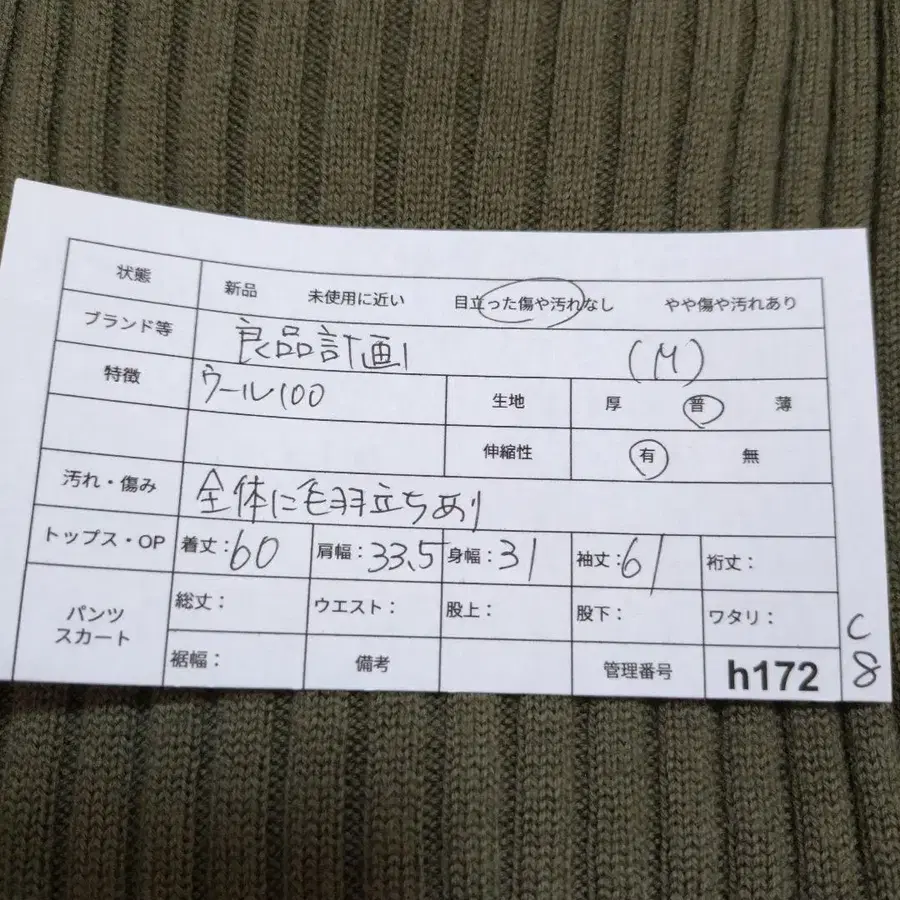 状態 新品 未使用に近い 目立った傷や汚れなし やや傷や汚れあり
ブランド等 良品計画 (M)
特徴 ウール100 生地 厚 普 薄
伸縮性 有 無
汚れ・傷み 全体に毛羽立ちあり
トップス・OP 着丈:60 肩幅:33.5 身幅:31 袖丈:61 裄丈:
パンツ 総丈: ウエスト: 股上: 股下: ワタリ:
スカート
裾幅: 備考 管理番号 h172
C
8